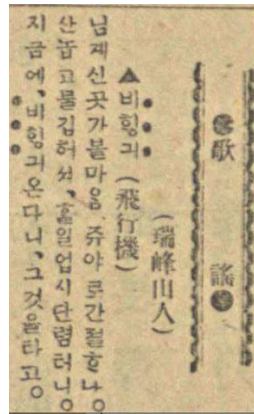 歌謠
(瑞峰山人)
▲비힝긔 (飛行機)
님계신곳가볼마음、쥬야로간절ᄒᆞ나。
산놉고물깁허셔、홀일업시단렴터니。
지금에、비힝긔온다니、그것을타고。